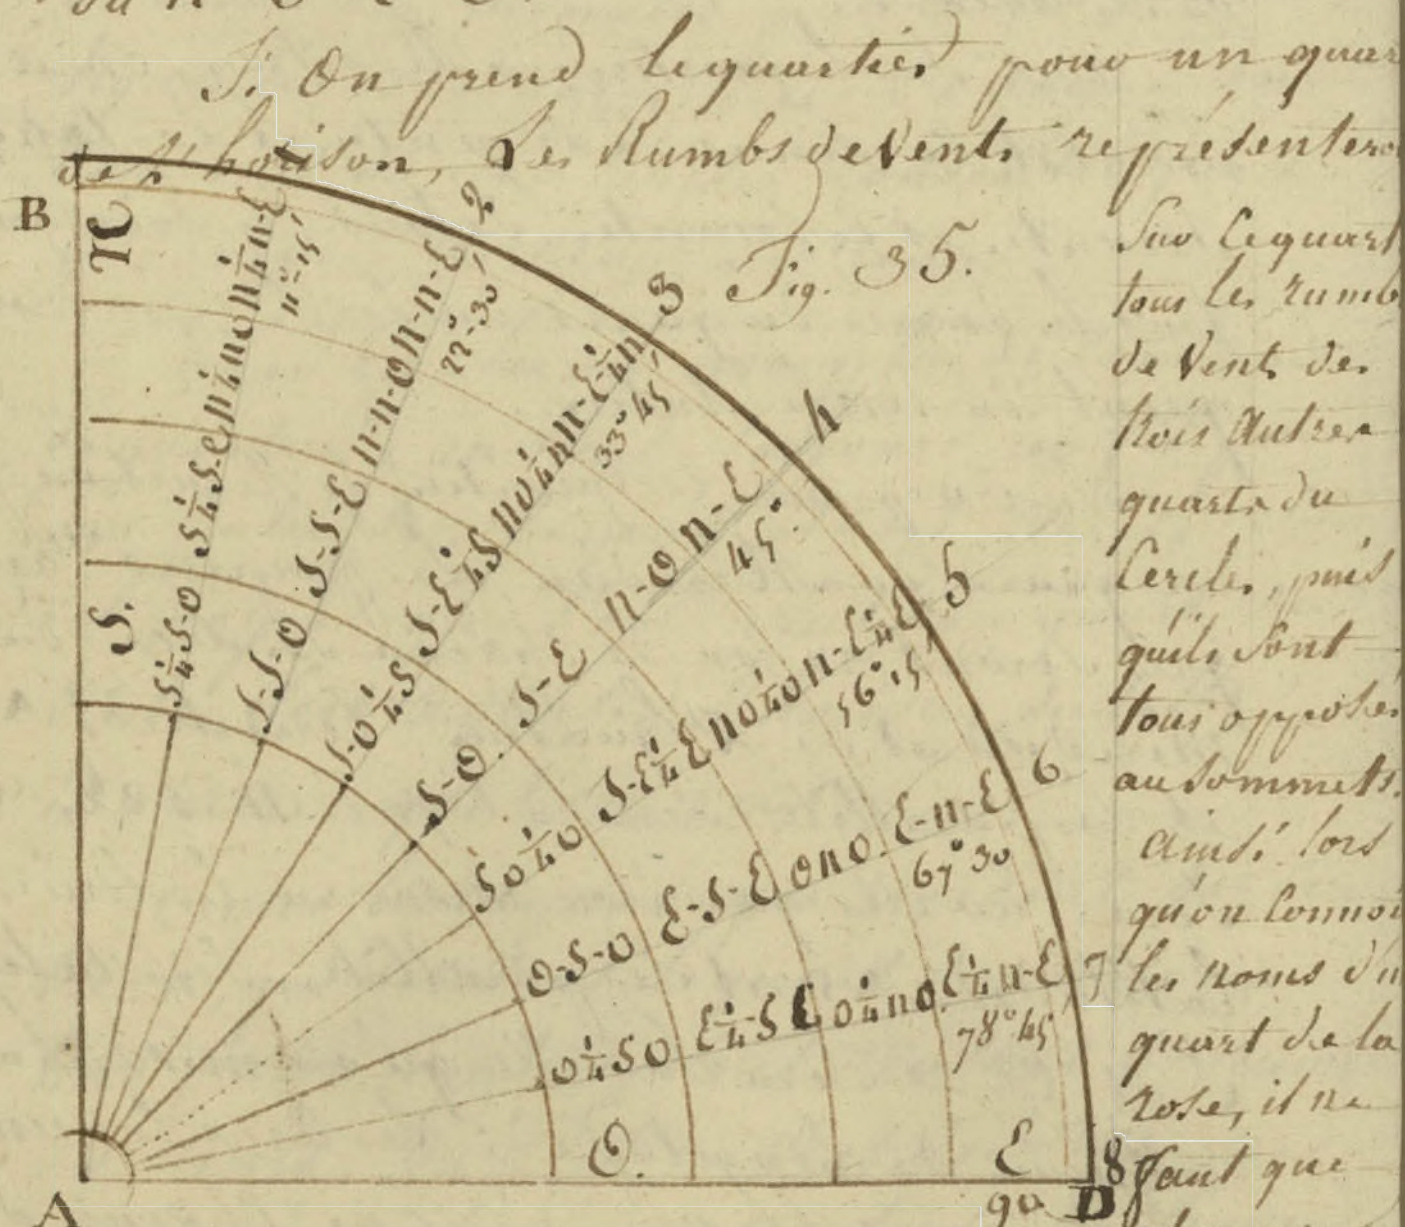 Si On prend le quartier pour un quar
de l'horison, Les Rumbs de Vent représentero
Fig. 35.
Sur le quart
tous les rumb
de Vent des
trois Autres
quarts du
Cercle, puis
qu'ils sont
tous opposés
au sommets.
Ainsi lors
qu'on connoi
les noms d'u
quart de la
rose, il ne
faut que
B
N
S.
1
S¼S-O S¼S-E n¼no n¼n-E
11°-15'
2
S-S-O S-S-E n-n-O n-n-E
22°-30
3
S-O¼S S-E¼S no¼n n-E¼n
33° 45'
4
S-O. S-E n-O n-E
45°.
5
SO¼O S-E¼E no¼o n-E¼E
56° 15'
6
O-S-O E-S-E ono. E-n-E
67° 30
7
O¼SO E¼SE O¼no E¼n-E
78° 45'
O.
E
90
8
D
A